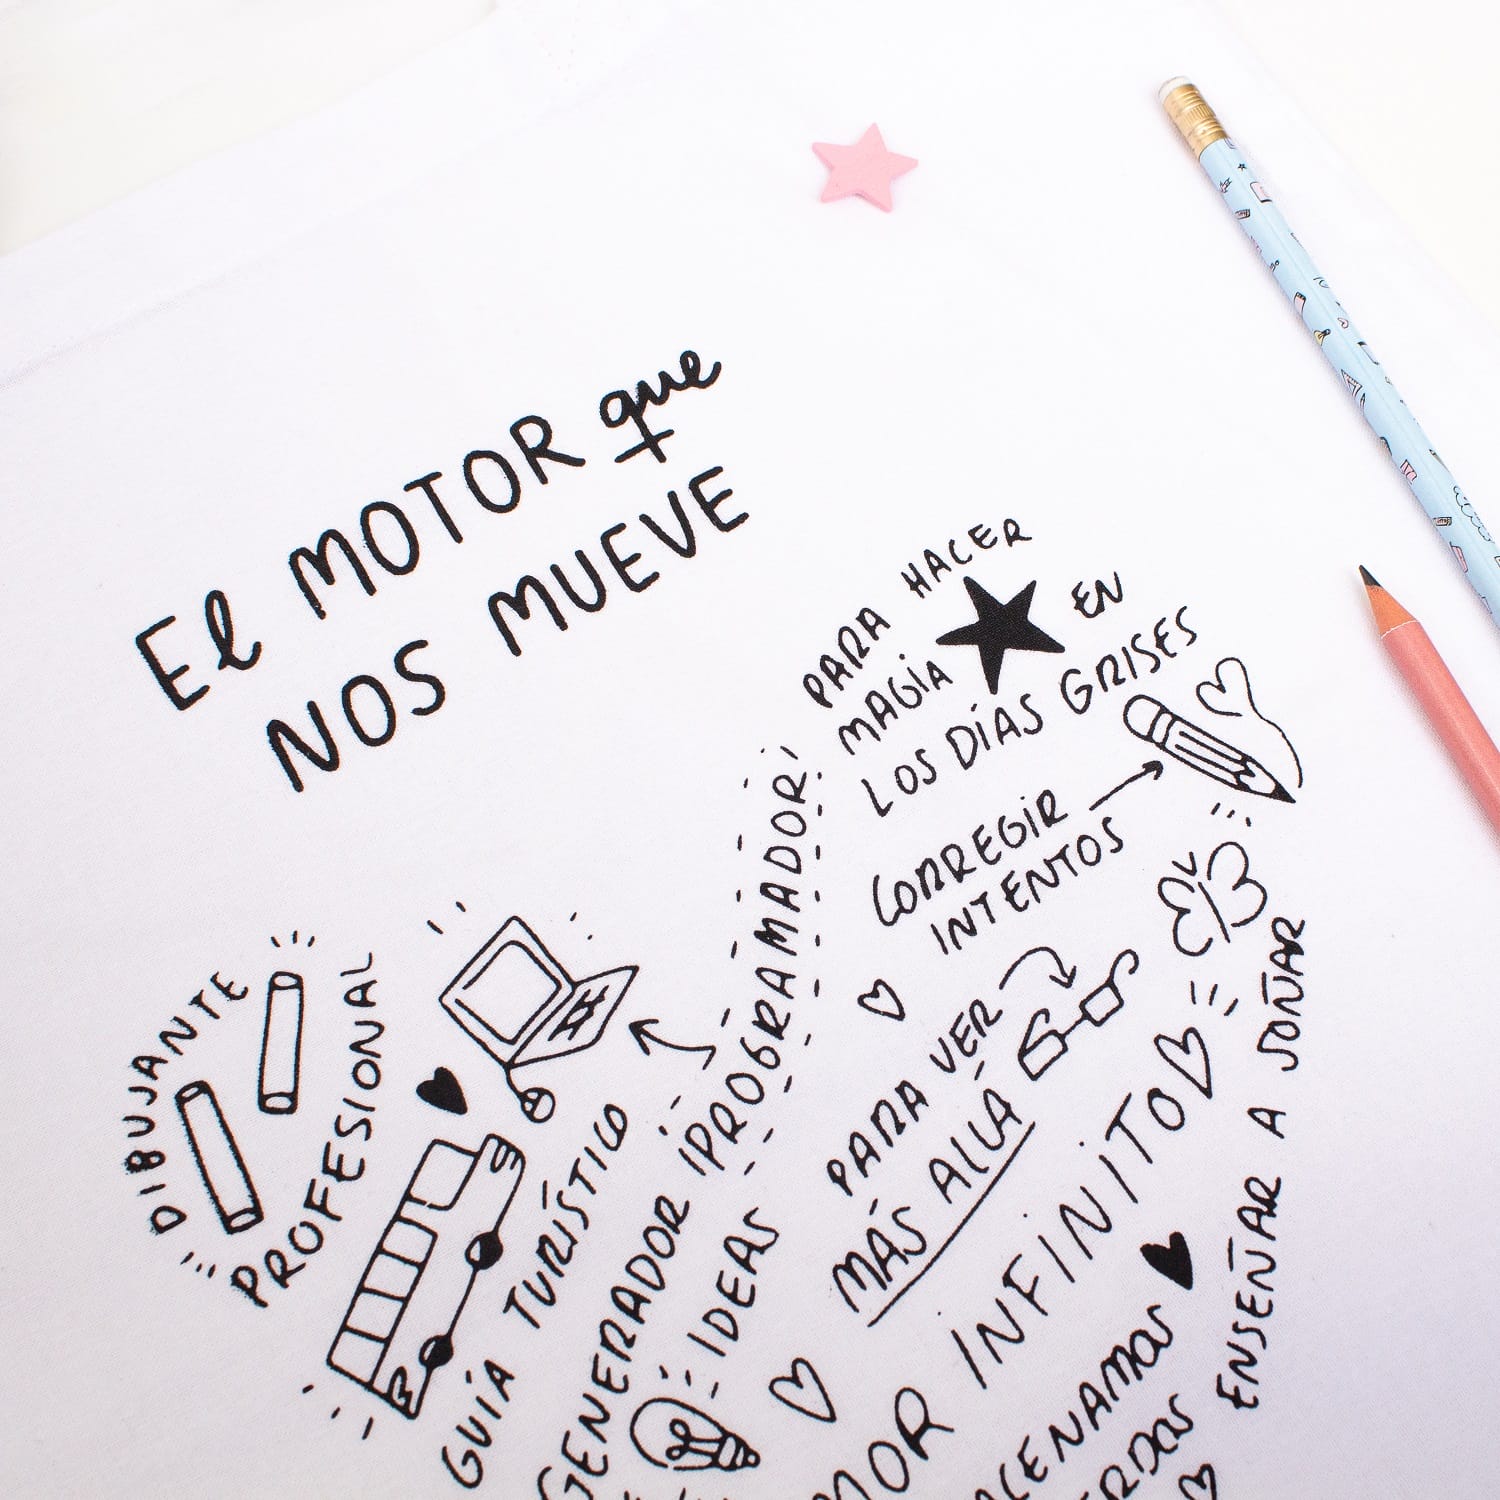 El MOTOR que
NOS MUEVE
PARA HACER
MAGIA EN
LOS DÍAS GRISES
CORREGIR
INTENTOS
PARA VER
MÁS ALLÁ
INFINITO
ENSEÑAR A SOÑAR
¡PROGRAMADOR!
DIBUJANTE
PROFESIONAL
GUÍA TURÍSTICO
GENERADOR
IDEAS